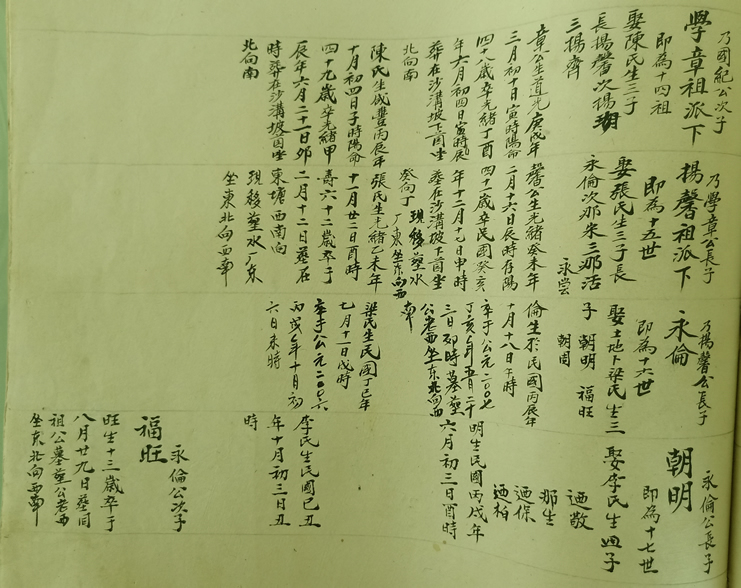 乃國紀公次子
學章祖派下
即為十四祖
娶陳氏生三子
長揚馨次揚瑚
三揚齊
章公生道光庚戌年
三月初十日寅時陽命
四十八歲卒光緒丁酉
年六月初四日寅時辰
葬在沙溝坡下酉坐
北向南
陳氏生咸豐丙辰年
十月初四日子時陽命
四十九歲卒光緒甲
辰年六月二十一日卯
時葬在沙溝坡酉坐
北向南
乃學章公長子
揚馨祖派下
即為十五世
娶張氏生三子長
永倫次那朱三那活
永崇
馨公生光緒癸未年
二月十六日辰時存陽
四十一歲卒民國癸亥
年十二月七日申時
葬在沙溝坡下酉坐
癸向丁
現移塋水
厂東坐東向西南
張氏生光緒乙未年
十一月廿二日酉時
壽六十二歲卒于
二月十二日葬在
東塘西南向
現移塋水厂東
坐東北向西南
乃揚馨公長子
永倫
即為十六世
娶土地卜梁氏生三
子
朝明
福旺
朝周
倫生於民國丙辰年
十月十八日午時
卒于公元二00七
丁亥年五月二十
三日卯時墓塋
公老西坐东北向西
南
梁氏生民國丁巳年
七月十一日戌時
卒于公元二00六
丙戌年十月初
六日未時
永倫公長子
朝明
即為十七世
娶李氏生四子
迺敬
那生
迺保
迺柏
明生民國丙戌年
六月初三日酉時
李氏生民國己丑
年十月初三日丑
時
永倫公次子
福旺
旺生十三歲卒于
八月廿九日墓同
祖公墓塋公老西
坐东北向西南